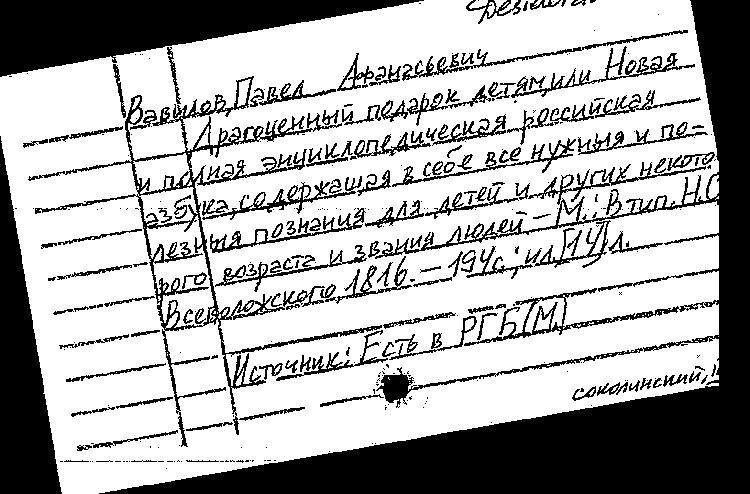 Вавилов, Павел Афанасьевич
Драгоценный подарок детям, или Новая
и полная энциклопедическая российская
азбука, содержащая в себе все нужныя и по=
лезныя познания для детей и других некото
рого возраста и звания людей – М.: В тип. Н.С
Всеволожского, 1816. – 194с.; ил. [14] л.
Источник: Есть в РГБ (М.)
соколинский,